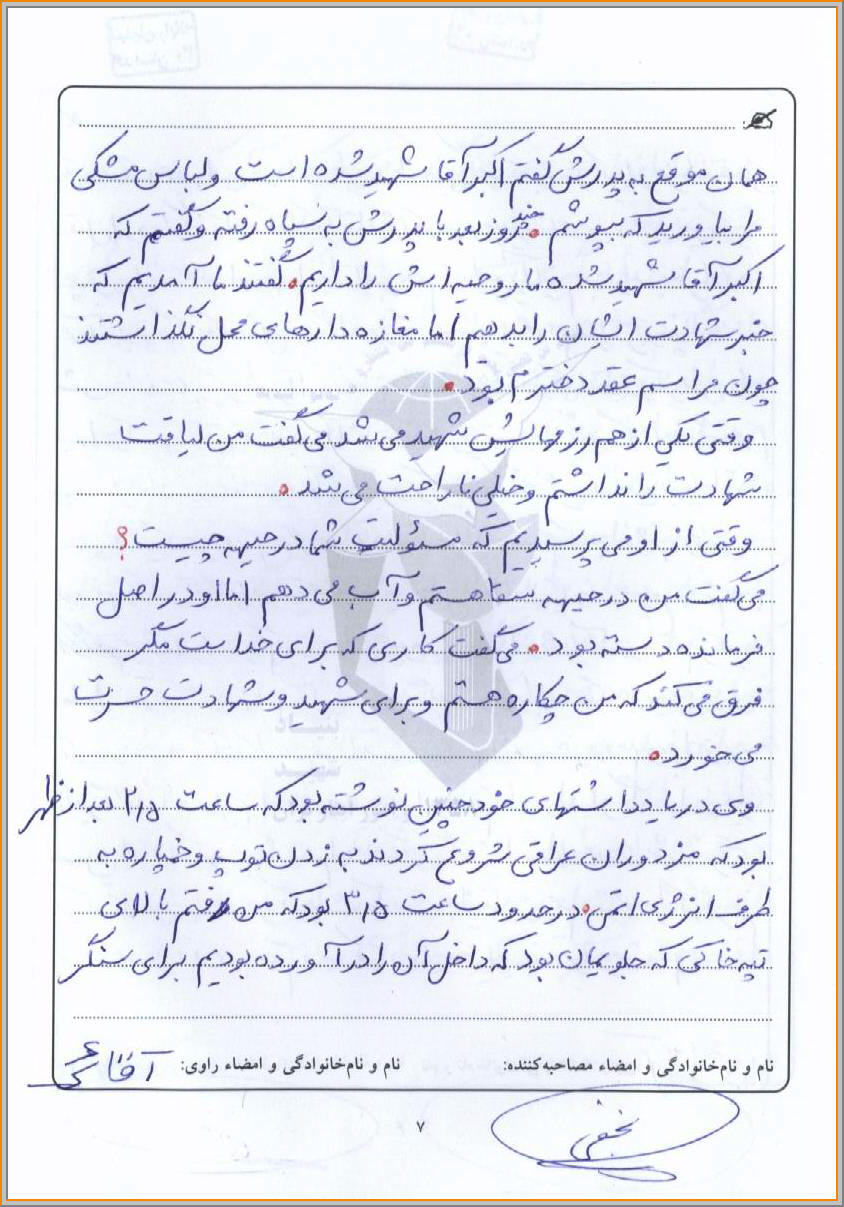 همان موقع به پدرش گفتم اکبر آقا شهید شده است و لباس مشکی
مرا بیاورید که بپوشم . چند روز بعد با پدرش به سپاه رفته و گفتم که
اکبر آقا شهید شده ما روحیه اش را داریم . گفتند ما آمدیم که
خبر شهادت ایشان را بدهیم اما مغازه دارهای محل نگذاشتند
چون مراسم عقد دخترم بود .
وقتی یکی از هم رزمهایش شهید می شد می گفت من لیاقت
شهادت را نداشتم و خیلی ناراحت می شد .
وقتی از او می پرسیدیم که مسئولیت شما در جبهه چیست ؟
می گفت من در جبهه سقا هستم و آب می دهم اما او در اصل
فرمانده دسته بود . می گفت کاری که برای خداست مگر
فرق می کند که من چکاره هستم و برای شهید و شهادت حسرت
می خورد .
وی در یادداشتهای خود چنین نوشته بود که ساعت ۲/۵ بعد از ظهر
بود که مزدوران عراقی شروع کردند به زدن توپ و خمپاره به
طرف انرژی اتمی . در حدود ساعت ۳/۵ بود که من رفتم بالای
تپه خاکی که جلویمان بود که داخل آن را در آورده بودیم برای سنگر
نام و نام‌خانوادگی و امضاء مصاحبه‌کننده: نام و نام‌خانوادگی و امضاء راوی:
نجفی
۷
بنیاد
شهید